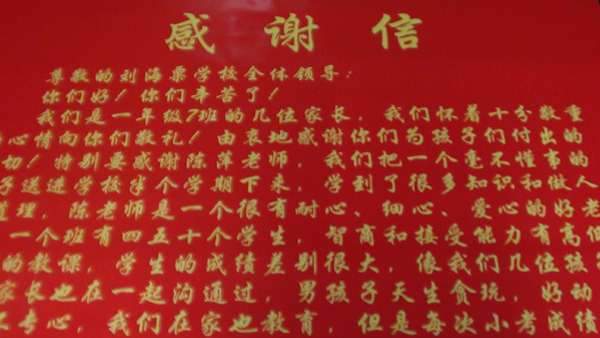 感谢信
尊敬的刘海粟学校全体领导:
你们好!你们辛苦了!
我们是一年级7班的几位家长,我们怀着十分敬重
心情向你们敬礼!由衷地感谢你们为孩子们付出的
切!特别要感谢陈萍老师,我们把一个毫不懂事的
子送进学校半个学期下来,学到了很多知识和做人
道理,陈老师是一个很有耐心、细心、爱心的好老
一个班有四五十个学生,智商和接受能力有高低
的教课,学生的成绩差别很大,像我们几位孩
家长也在一起沟通过,男孩子天生贪玩,好动
专心,我们在家也教育,但是每次小考成绩